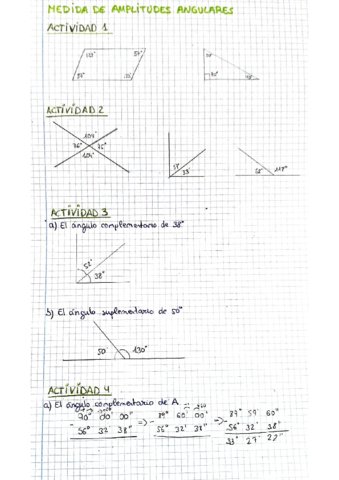 MEDIDA DE AMPLITUDES ANGULARES
ACTIVIDAD 1
ACTIVIDAD 2
104°
76° 76°
104°
57°
33°
ACTIVIDAD 3
a) El ángulo complementario de 38°
52°
38°
b) El ángulo suplementario de 50°
50 130°
ACTIVIDAD 4
a) El ángulo complementario de A
90° 00' 00" => 89° 60' 00" => 89° 59' 60"
56° 32' 38" 56° 32' 38" 56° 32' 38"
33° 27' 22"